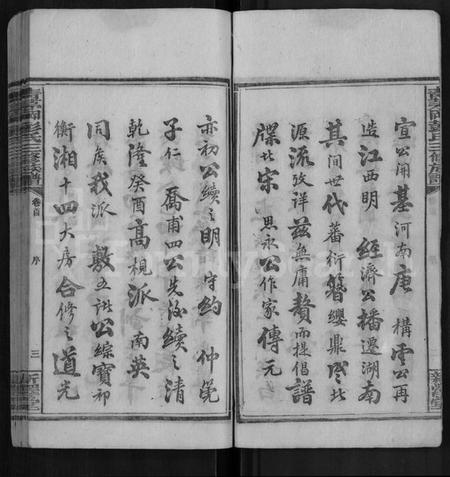 宣公開基河南唐構雲公再
造江西明經濟公播遷湖南
其间世代蕃衍簪纓鼎盛北
源流攷详兹無庸贅而提倡譜
牒北宋思永公作家傳元
亦初公續之明守約仲篪
子仁喬甫四公先後續之清
乾隆癸酉高梘派南英
同族我派敷五諧公綜寶初
衡湘十四大房合修之道光
三修族譜
卷首
序
三